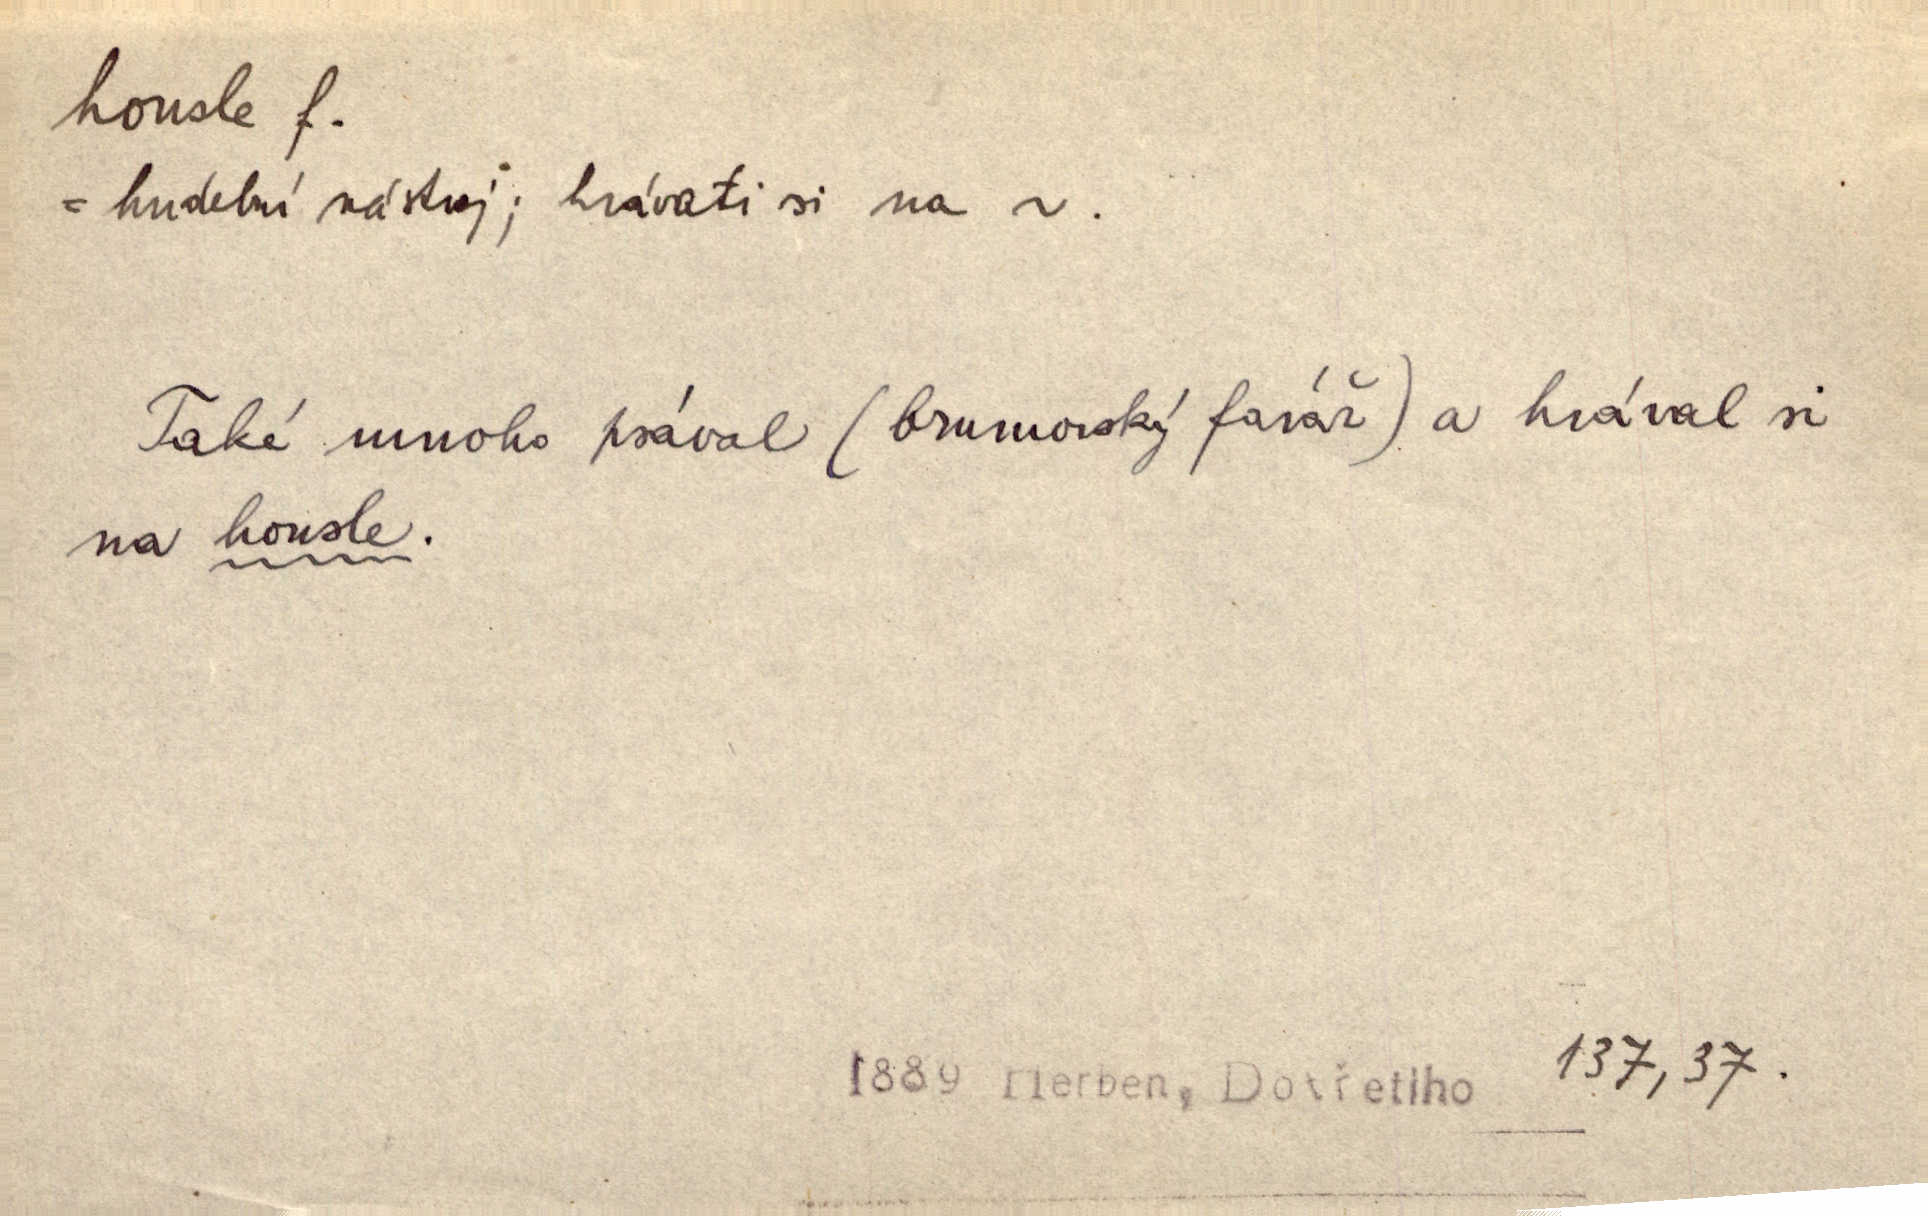 housle f.
= hudební nástroj; hrávati si na ~.
Také mnoho psával (brumovský farář) a hrával si
na housle.
1889 Herben, Dotřetího 137,37.